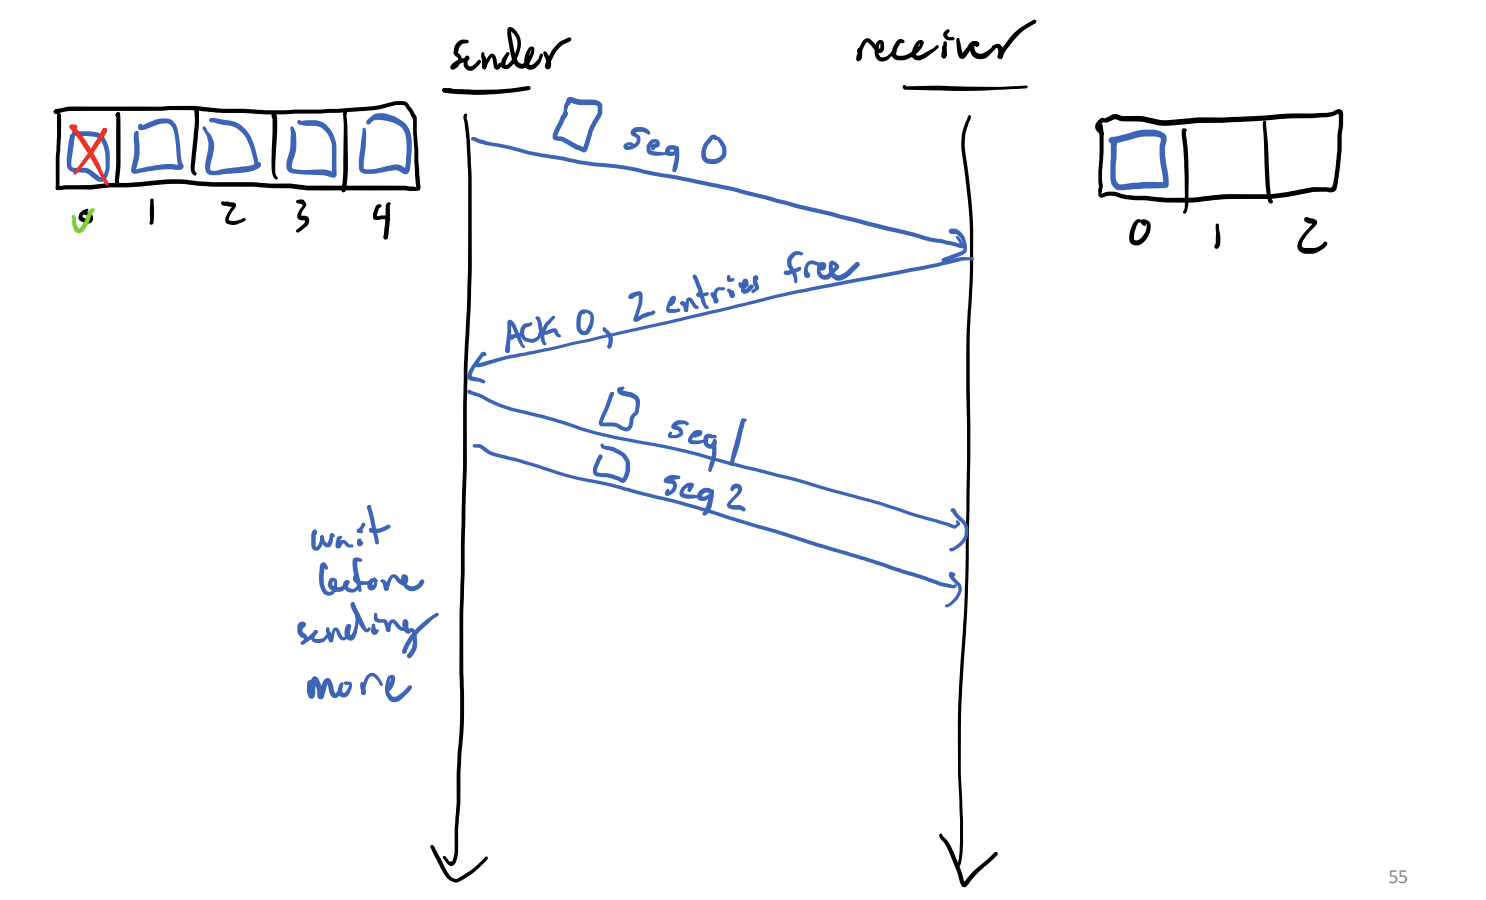 sender
receiver
seq 0
0 1 2 3 4
0 1 2
ACK 0, 2 entries free
seq 1
seq 2
wait
before
sending
more
55